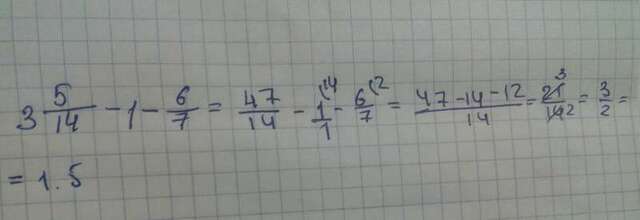 3 5/14 - 1 - 6/7 = 47/14 - 1/1 (14 - 6/7 (2 = 47-14-12/14 = 21/14 3 2 = 3/2 =
= 1.5